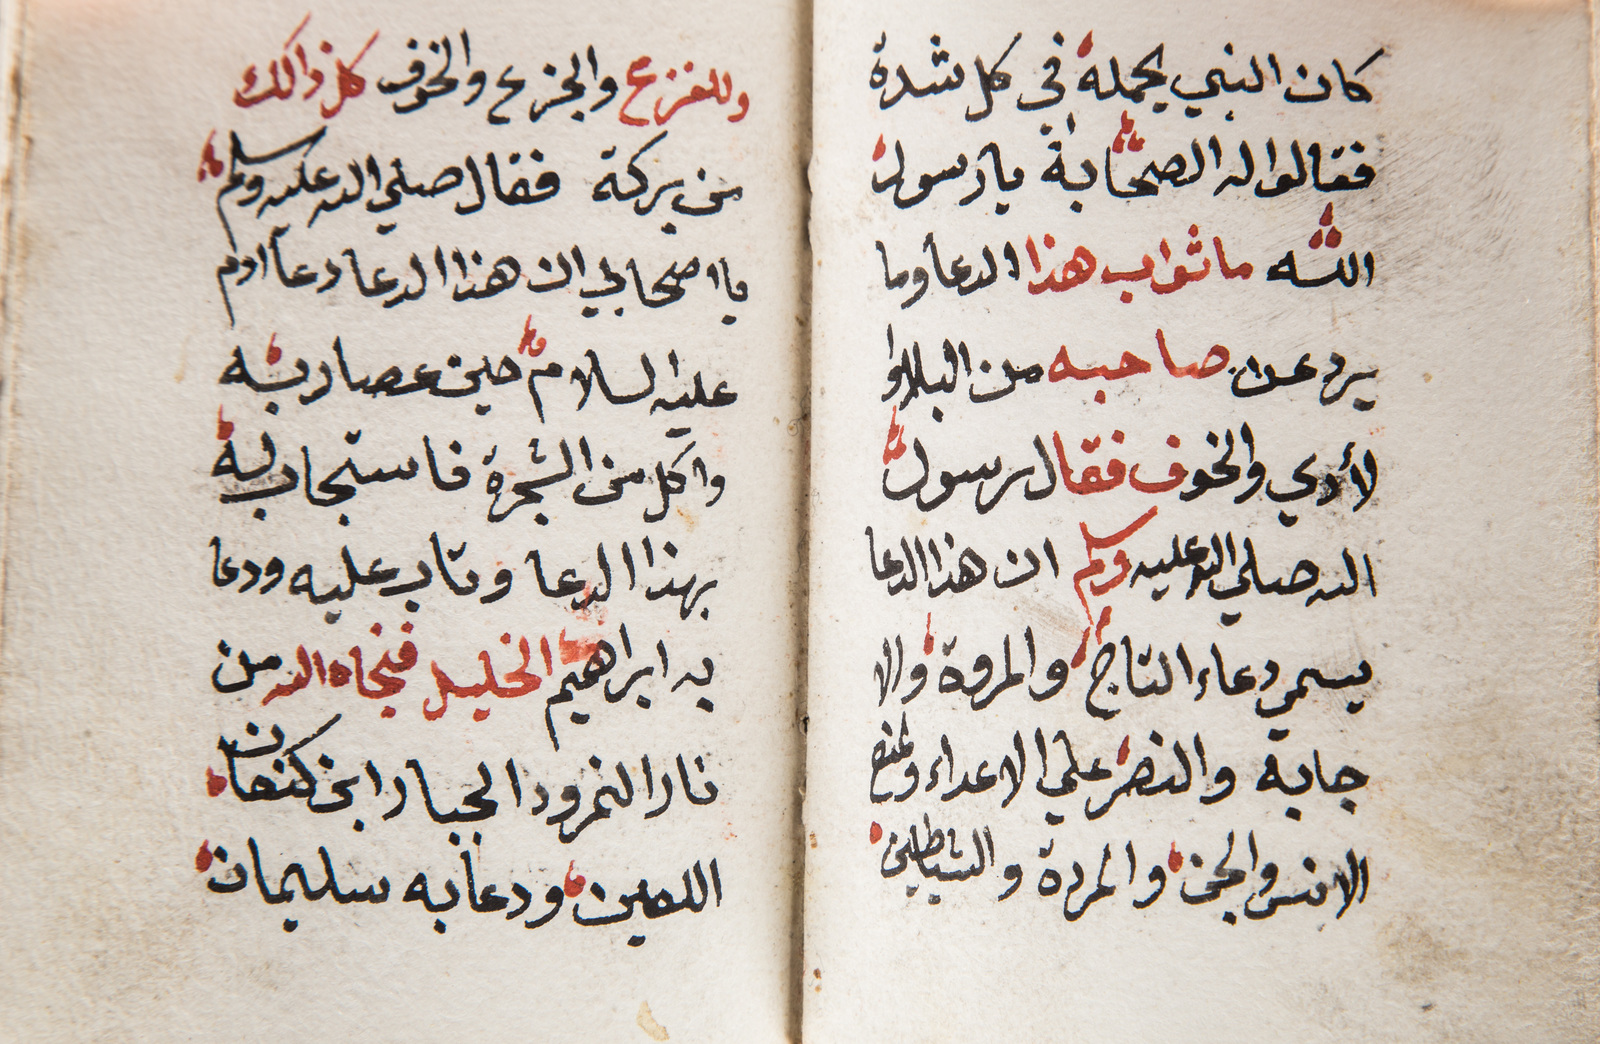 كان النبي يحمله في كل شدة
فقالوا له الصحابة يا رسول
الله ما ثواب هذا الدعا وما
يرد عن صاحبه من البلاوا
لأدي والخوف فقال رسول
الله صلي الله عليه وسلم ان هذا الدعا
يسمي دعاء التاج والمروة والا
جابة والنصر علي الاعداء ولمنع
الانس والجن والمردة والشياطين
وللفزع والجزع والخوف كل ذالك
من بركة فقال صلي الله عليه وسلم
يا اصحابي ان هذا الدعا دعا ادم
عليه السلام حين عصا ربه
واكل من الشجرة فاستجاب ربه
بهذا الدعا وتاب عليه ودعا
به ابراهيم الخليل فنجاه الله من
نار النمرود الجبار ابن كنعان
اللعين ودعا به سليمان